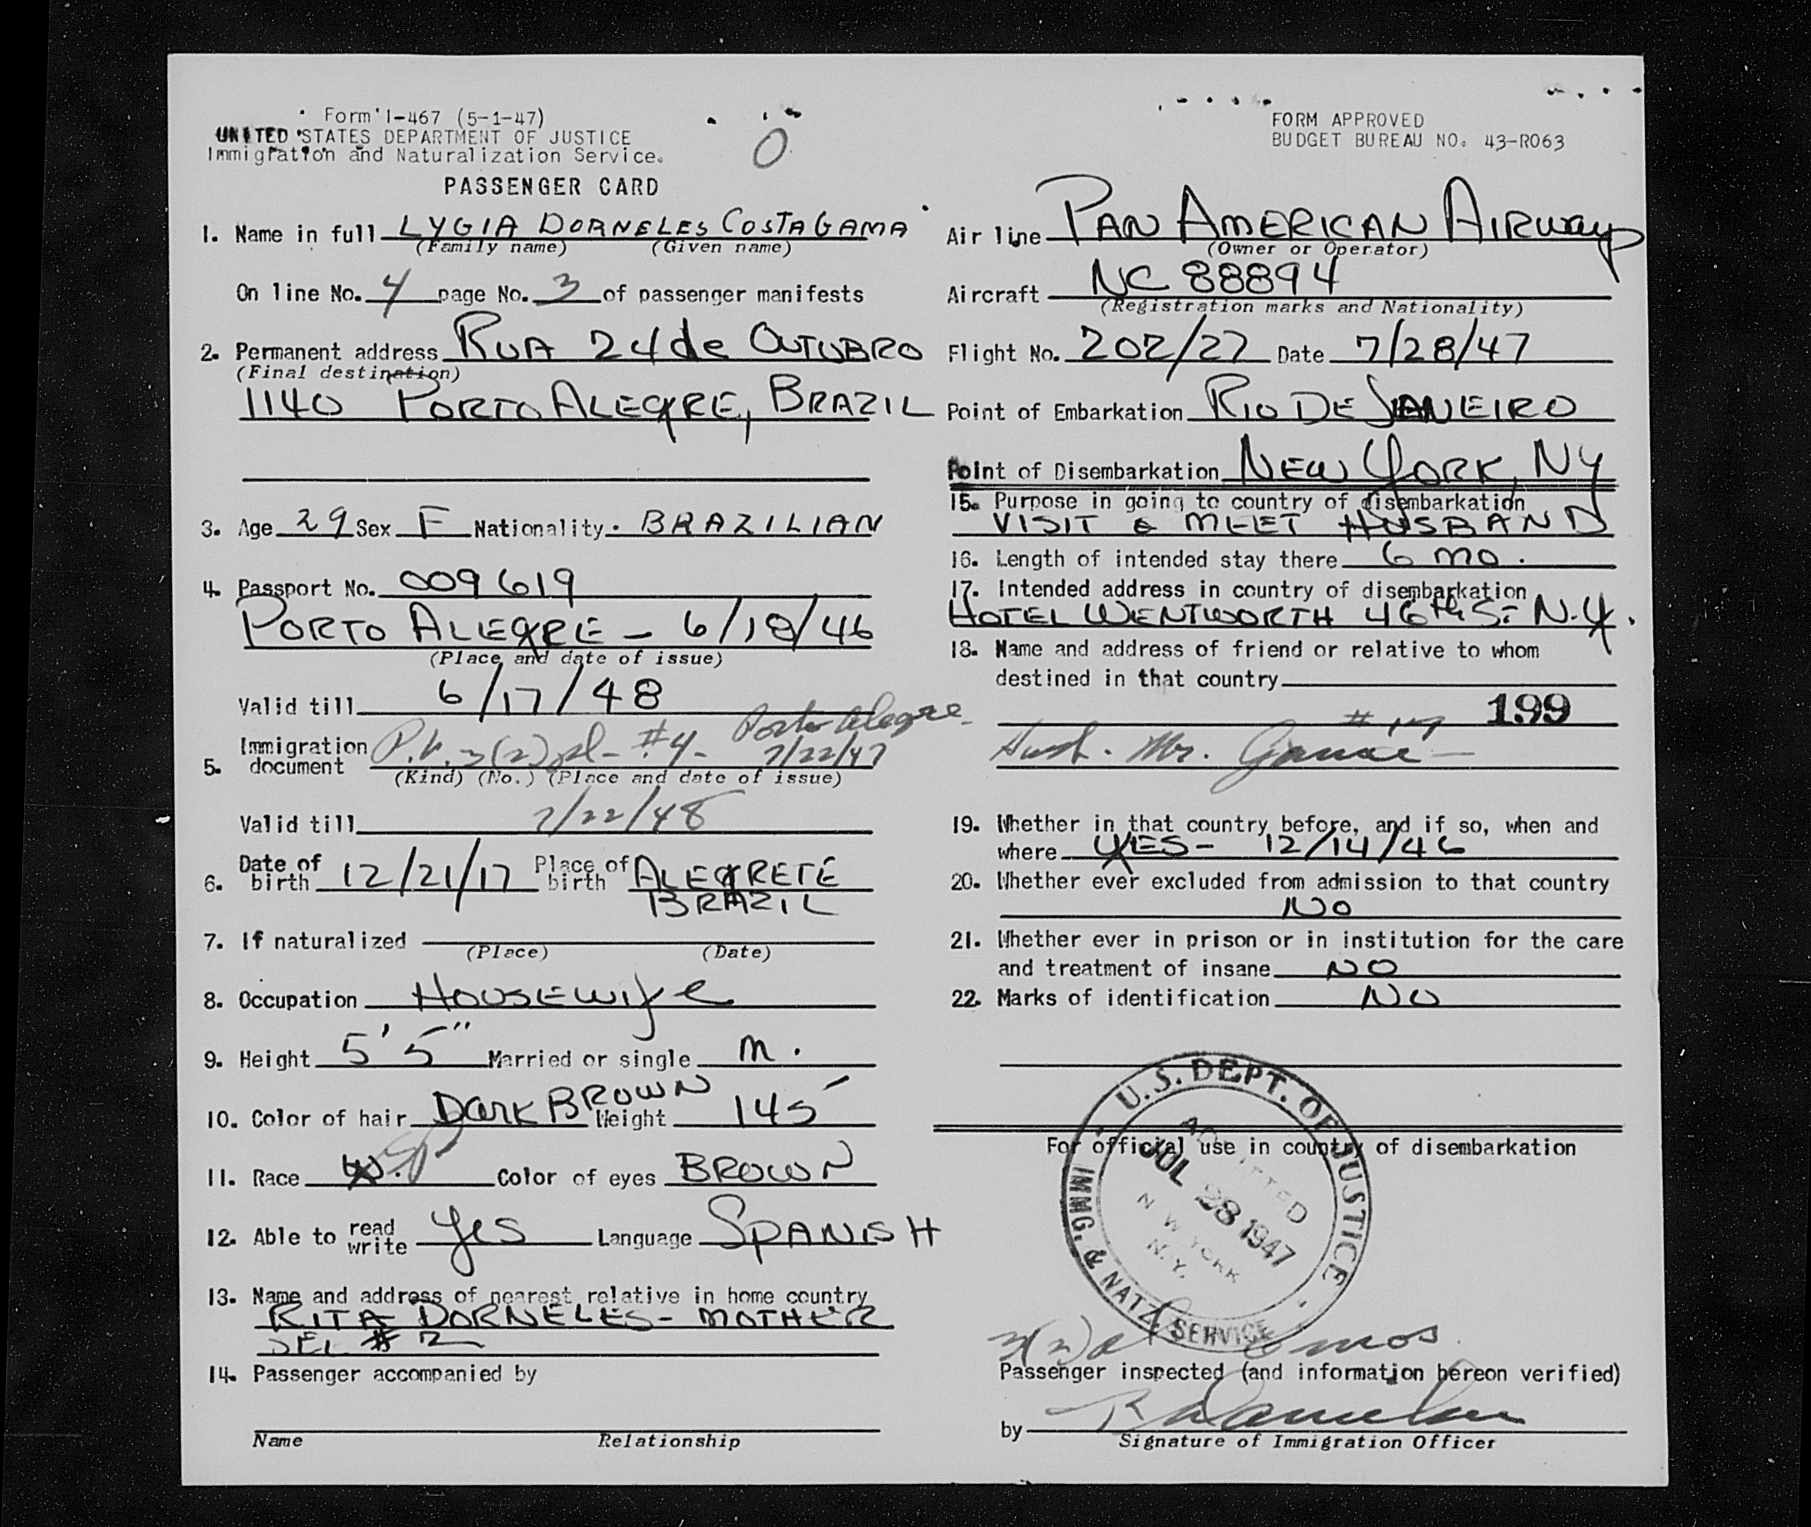 Form I-467 (5-1-47)
UNITED STATES DEPARTMENT OF JUSTICE
Immigration and Naturalization Service.
PASSENGER CARD
0
FORM APPROVED
BUDGET BUREAU NO. 43-R063
1. Name in full LYGIA DORNELES COSTA GAMA
(Family name) (Given name)
On line No. 4 page No. 3 of passenger manifests
2. Permanent address RUA 24 de OUTUBRO
(Final destination)
1140 PORTO ALEGRE, BRAZIL
3. Age 29 Sex F Nationality. BRAZILIAN
4. Passport No. 009619
PORTO ALEGRE - 6/18/46
(Place and date of issue)
Valid till 6/17/48
5. Immigration document P.V. 3(2) #4- Porto Alegre 7/22/47
(Kind) (No.) (Place and date of issue)
Valid till 7/22/48
6. Date of birth 12/21/17 Place of birth ALEGRETE
BRAZIL
7. If naturalized
(Place) (Date)
8. Occupation HOUSEWife
9. Height 5' 5" Married or single M.
10. Color of hair Dark BROWN Weight 145
11. Race W. Color of eyes BROWN
12. Able to read write Yes Language SPANISH
13. Name and address of nearest relative in home country
RITA DORNELES - MOTHER
SEE # 2
14. Passenger accompanied by
Name Relationship
Air line PAN AMERICAN AIRways
(Owner or Operator)
Aircraft NC 88894
(Registration marks and Nationality)
Flight No. 202/27 Date 7/28/47
Point of Embarkation RIO DE JANEIRO
Point of Disembarkation NEW YORK, NY
15. Purpose in going to country of disembarkation
VISIT & MEET HUSBAND
16. Length of intended stay there 6 mo.
17. Intended address in country of disembarkation
HOTEL WENTWORTH 46th St N.Y.
18. Name and address of friend or relative to whom
destined in that country
# 17 199
Husb. Mr.
19. Whether in that country before, and if so, when and
where YES - 12/14/46
20. Whether ever excluded from admission to that country
NO
21. Whether ever in prison or in institution for the care
and treatment of insane NO
22. Marks of identification NO
For official use in country of disembarkation
U.S. DEPT. OF JUSTICE
ADMITTED
JUL 28 1947
NEW YORK
N.Y.
IMMG. & NATZ. SERVICE
3(2) 6 mos
Passenger inspected (and information hereon verified)
by
Signature of Immigration Officer